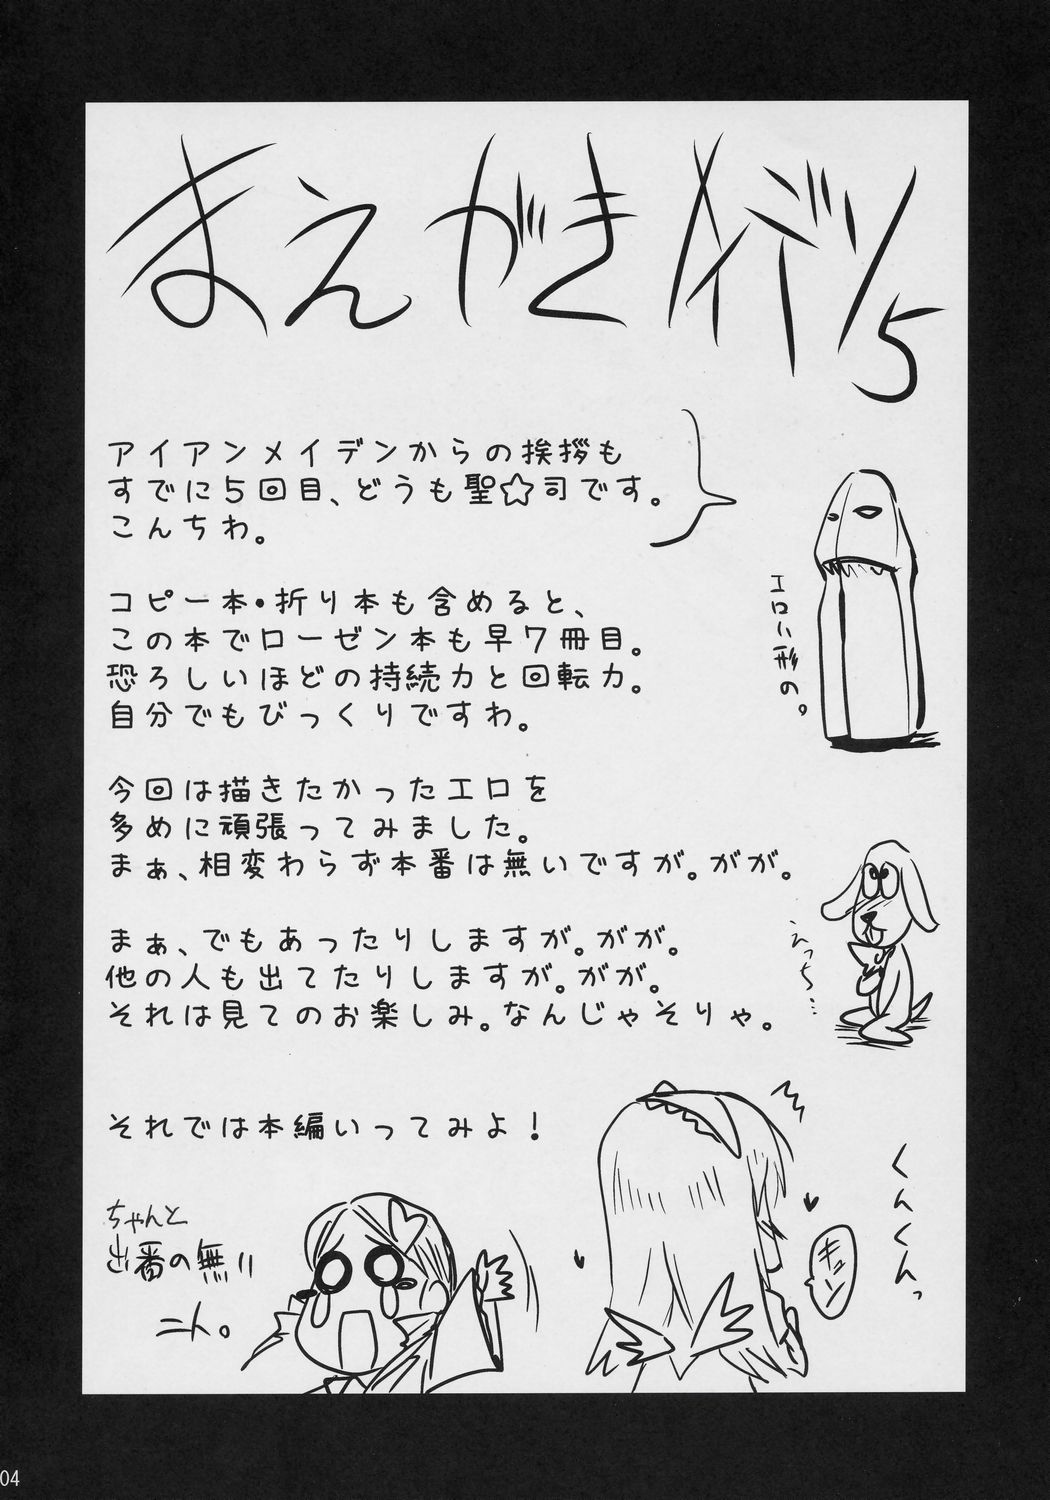 まえがきメイデン5
アイアンメイデンからの挨拶も
すでに5回目、どうも聖☆司です。
こんちわ。
コピー本・折り本も含めると、
この本でローゼン本も早7冊目。
恐ろしいほどの持続力と回転力。
自分でもびっくりですわ。
今回は描きたかったエロを
多めに頑張ってみました。
まぁ、相変わらず本番は無いですが。がが。
まぁ、でもあったりしますが。がが。
他の人も出てたりしますが。がが。
それは見てのお楽しみ。なんじゃそりゃ。
それでは本編いってみよ！
エロい形の。
えっち…
くんくんっ
キュン
ちゃんと
出番の無い
ニト。
04